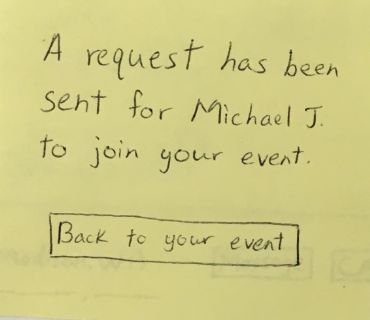 A request has been
sent for Michael J.
to join your event.
Back to your event